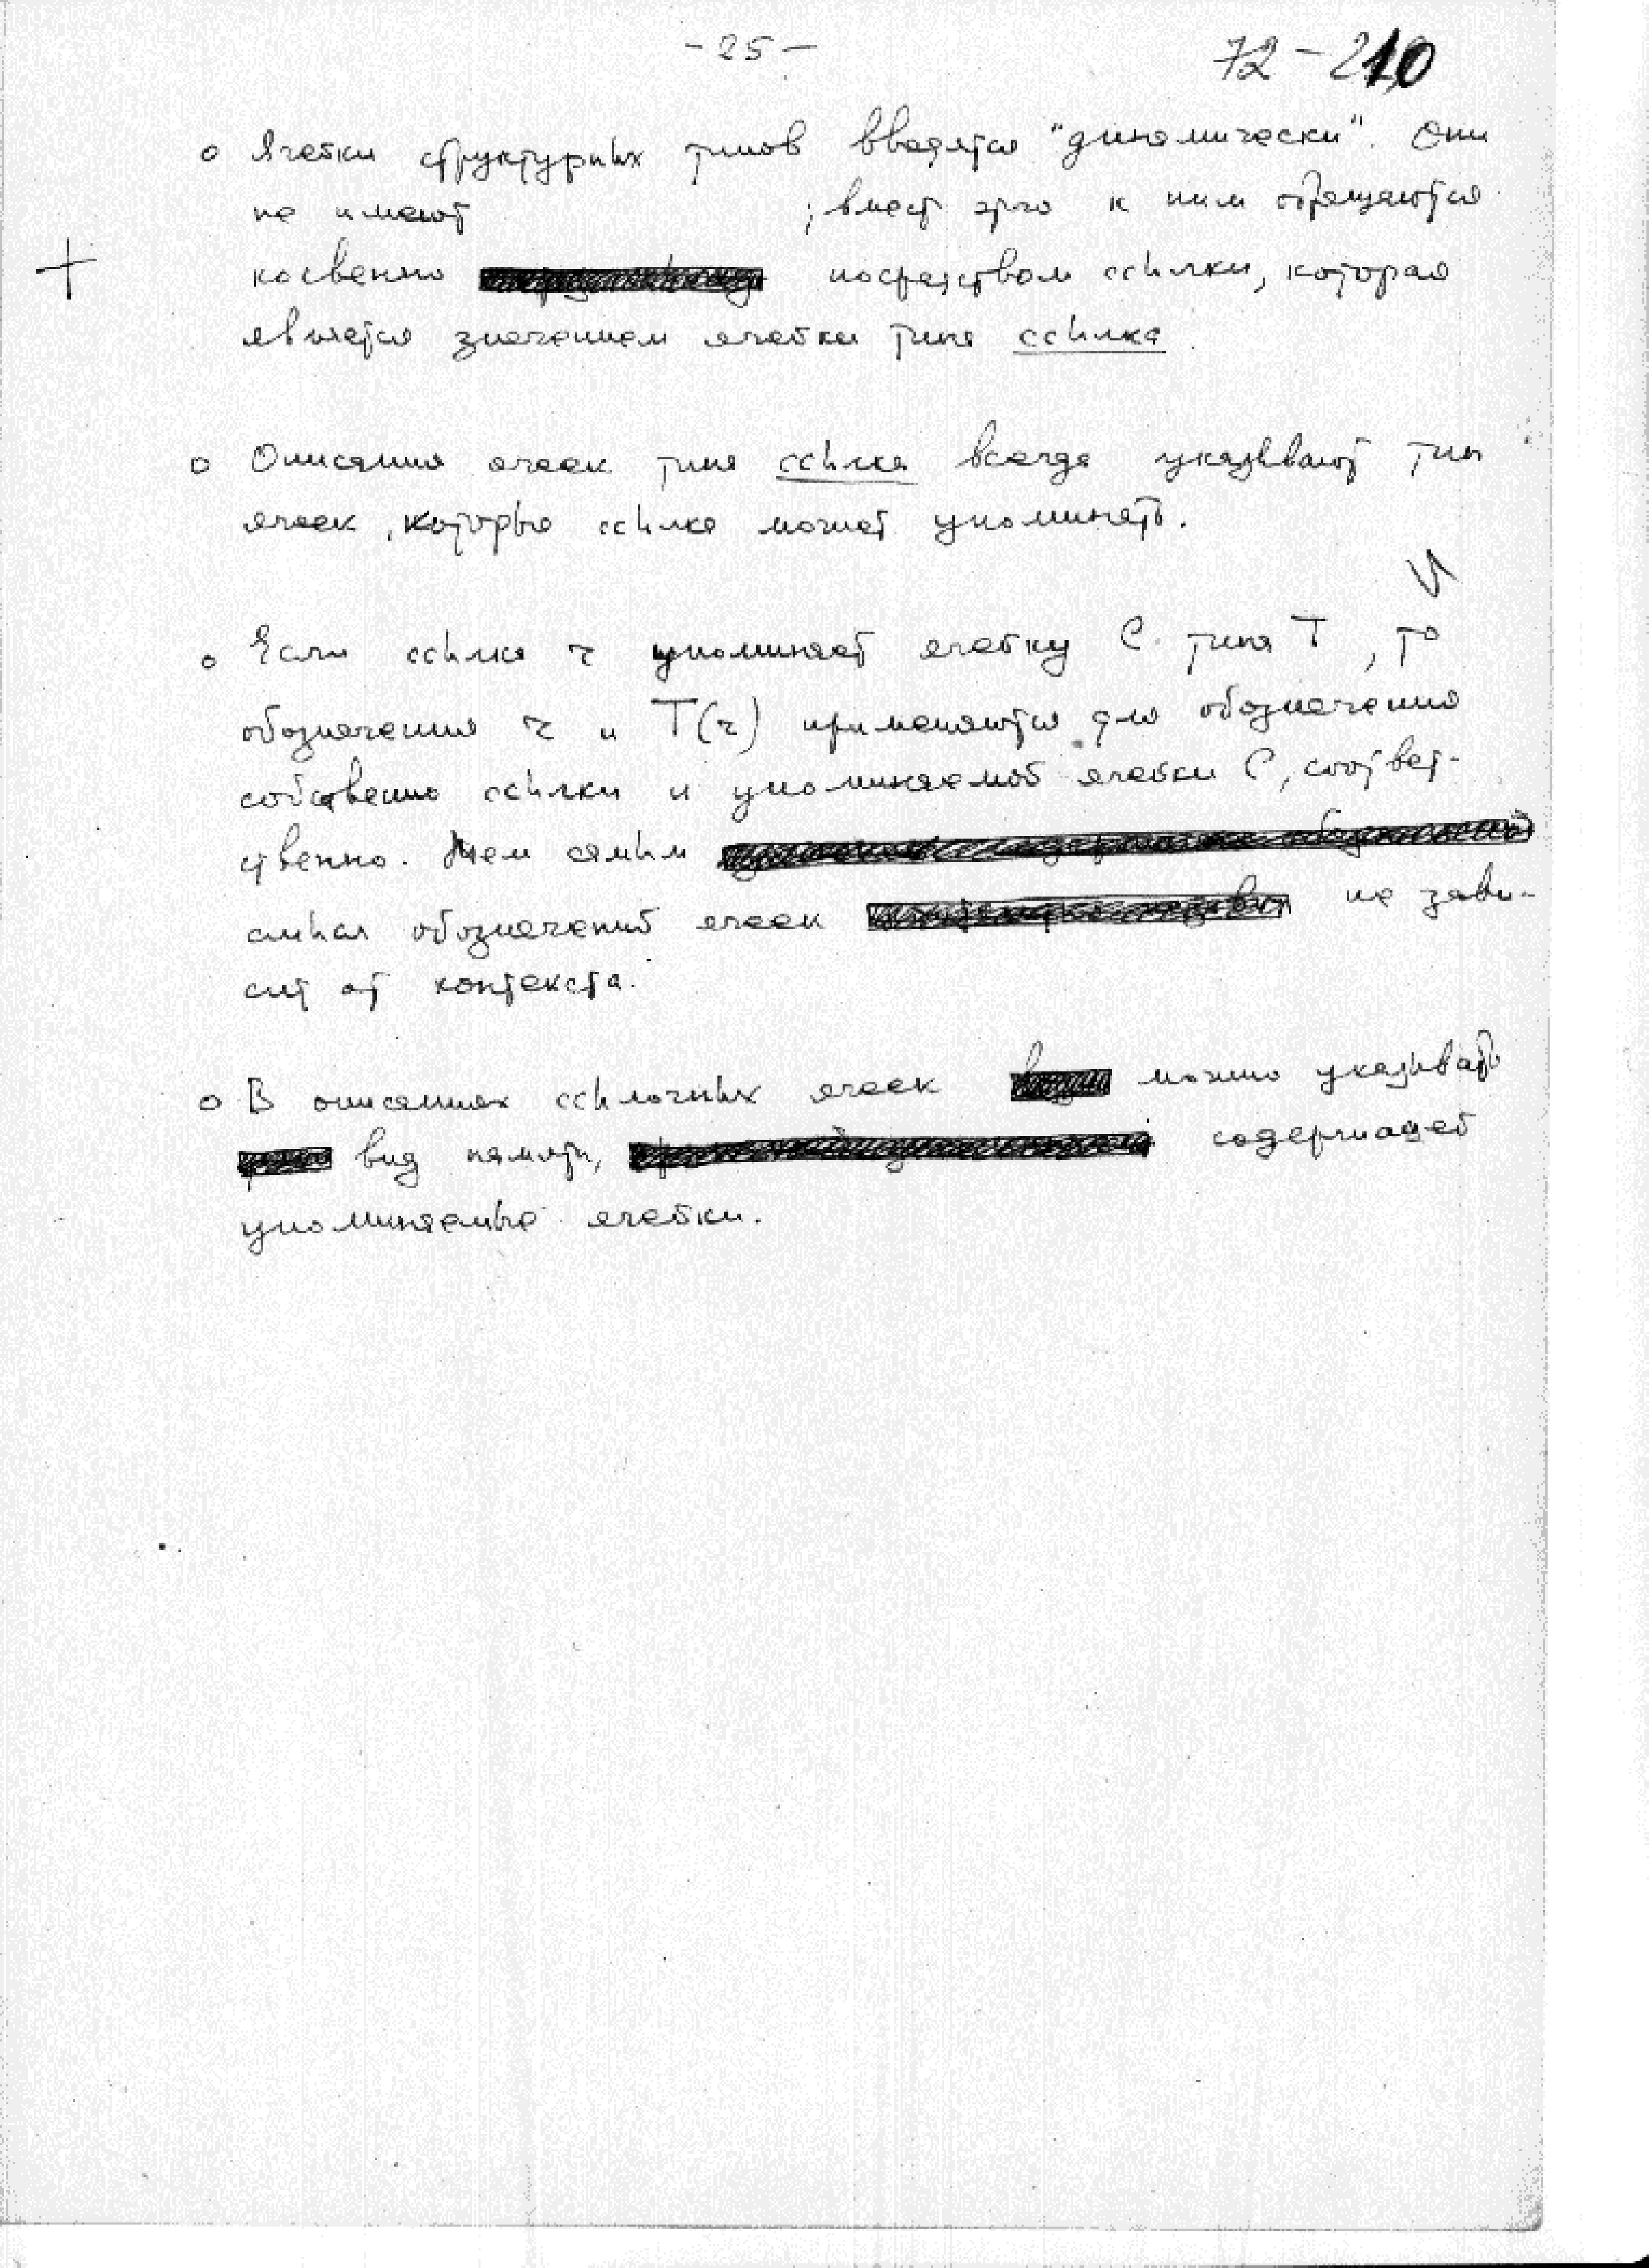 - 25 -
72-210
о Ячейки структурных типов вводятся "динамически". Они
не имеют ; вмест этого к ним обращаются
косвенно посредством ссылки, которая
является значением ячейки типа ссылка.
о Описания ячеек типа ссылка всегда указывают тип
ячеек, которые ссылка может упоминать.
о Если ссылка r упоминает ячейку C типа T, то
обозначения r и T(r) применяются для обозначения
собственно ссылки и упоминаемой ячейки C, соответ-
ственно. Тем самым
смысл обозначений ячеек не зави-
сит от контекста.
о В описаниях ссылочных ячеек можно указывать
вид памяти, содержащей
упоминаемые ячейки.